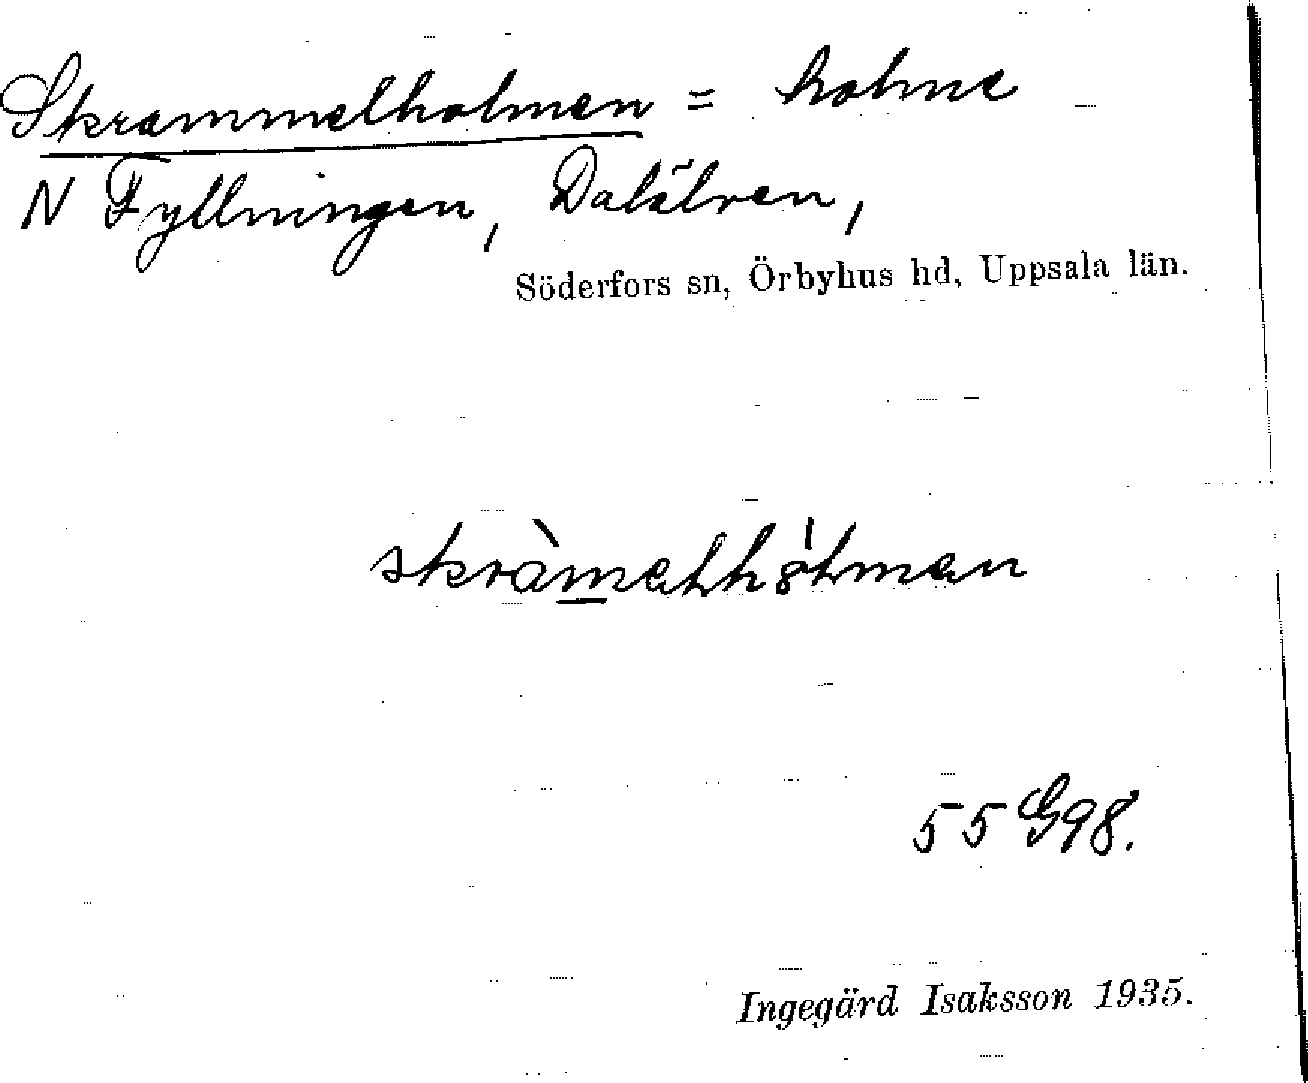 Skrammelholmen = holme
N Fyllningen, Dalälven,
Söderfors sn, Örbyhus hd, Uppsala län.
55 G98.
Ingegärd Isaksson 1935.